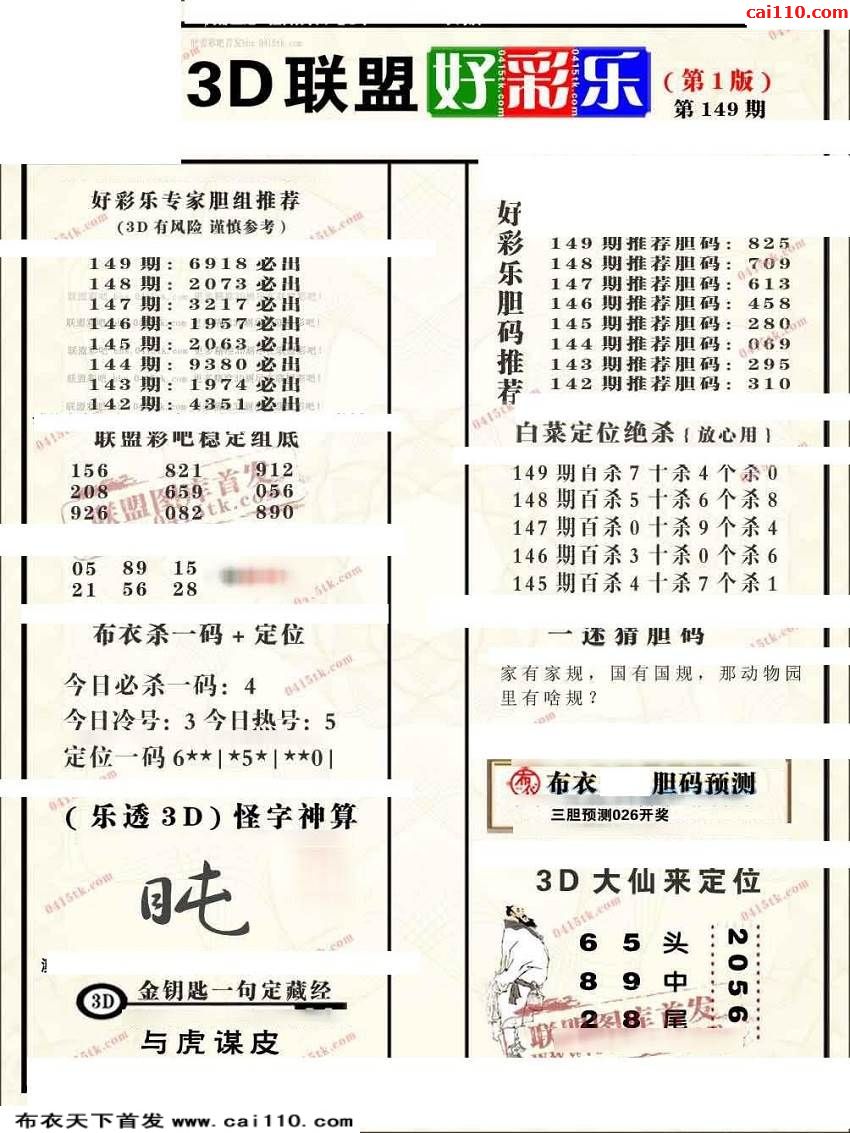 cai110.com
3D联盟好彩乐
(第1版)
第149期
好彩乐专家胆组推荐
(3D有风险 谨慎参考)
149期: 6918必出
148期: 2073必出
147期: 3217必出
146期: 1957必出
145期: 2063必出
144期: 9380必出
143期: 1974必出
142期: 4351必出
联盟彩吧稳定组底
156 821 912
208 659 056
926 082 890
05 89 15
21 56 28
布衣杀一码+定位
今日必杀一码: 4
今日冷号: 3 今日热号: 5
定位一码 6**|*5*|**0|
(乐透3D)怪字神算
3D 金钥匙一句定藏经
与虎谋皮
好彩乐胆码推荐
149期推荐胆码: 825
148期推荐胆码: 709
147期推荐胆码: 613
146期推荐胆码: 458
145期推荐胆码: 280
144期推荐胆码: 069
143期推荐胆码: 295
142期推荐胆码: 310
白菜定位绝杀{放心用}
149期百杀7十杀4个杀0
148期百杀5十杀6个杀8
147期百杀0十杀9个杀4
146期百杀3十杀0个杀6
145期百杀4十杀7个杀1
一迷猜胆码
家有家规，国有国规，那动物园
里有啥规？
布衣 胆码预测
三胆预测026开奖
3D大仙来定位
6 5 头
8 9 中
2 8 尾
2056
联盟图库首发
0415tk.com
布衣天下首发 www.cai110.com